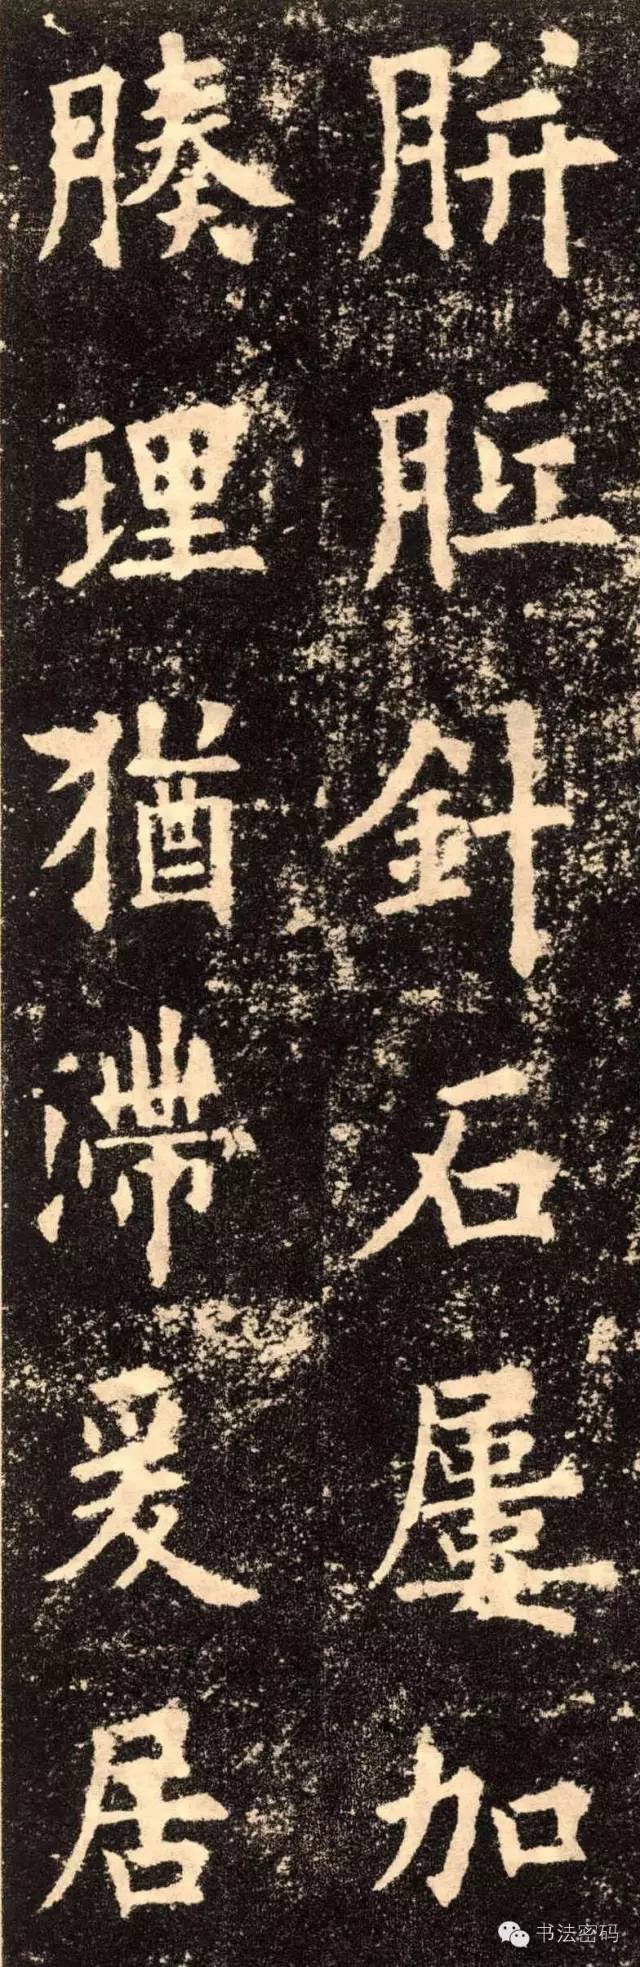 胼胝針石屢加
腠理猶滯爰居
书法密码